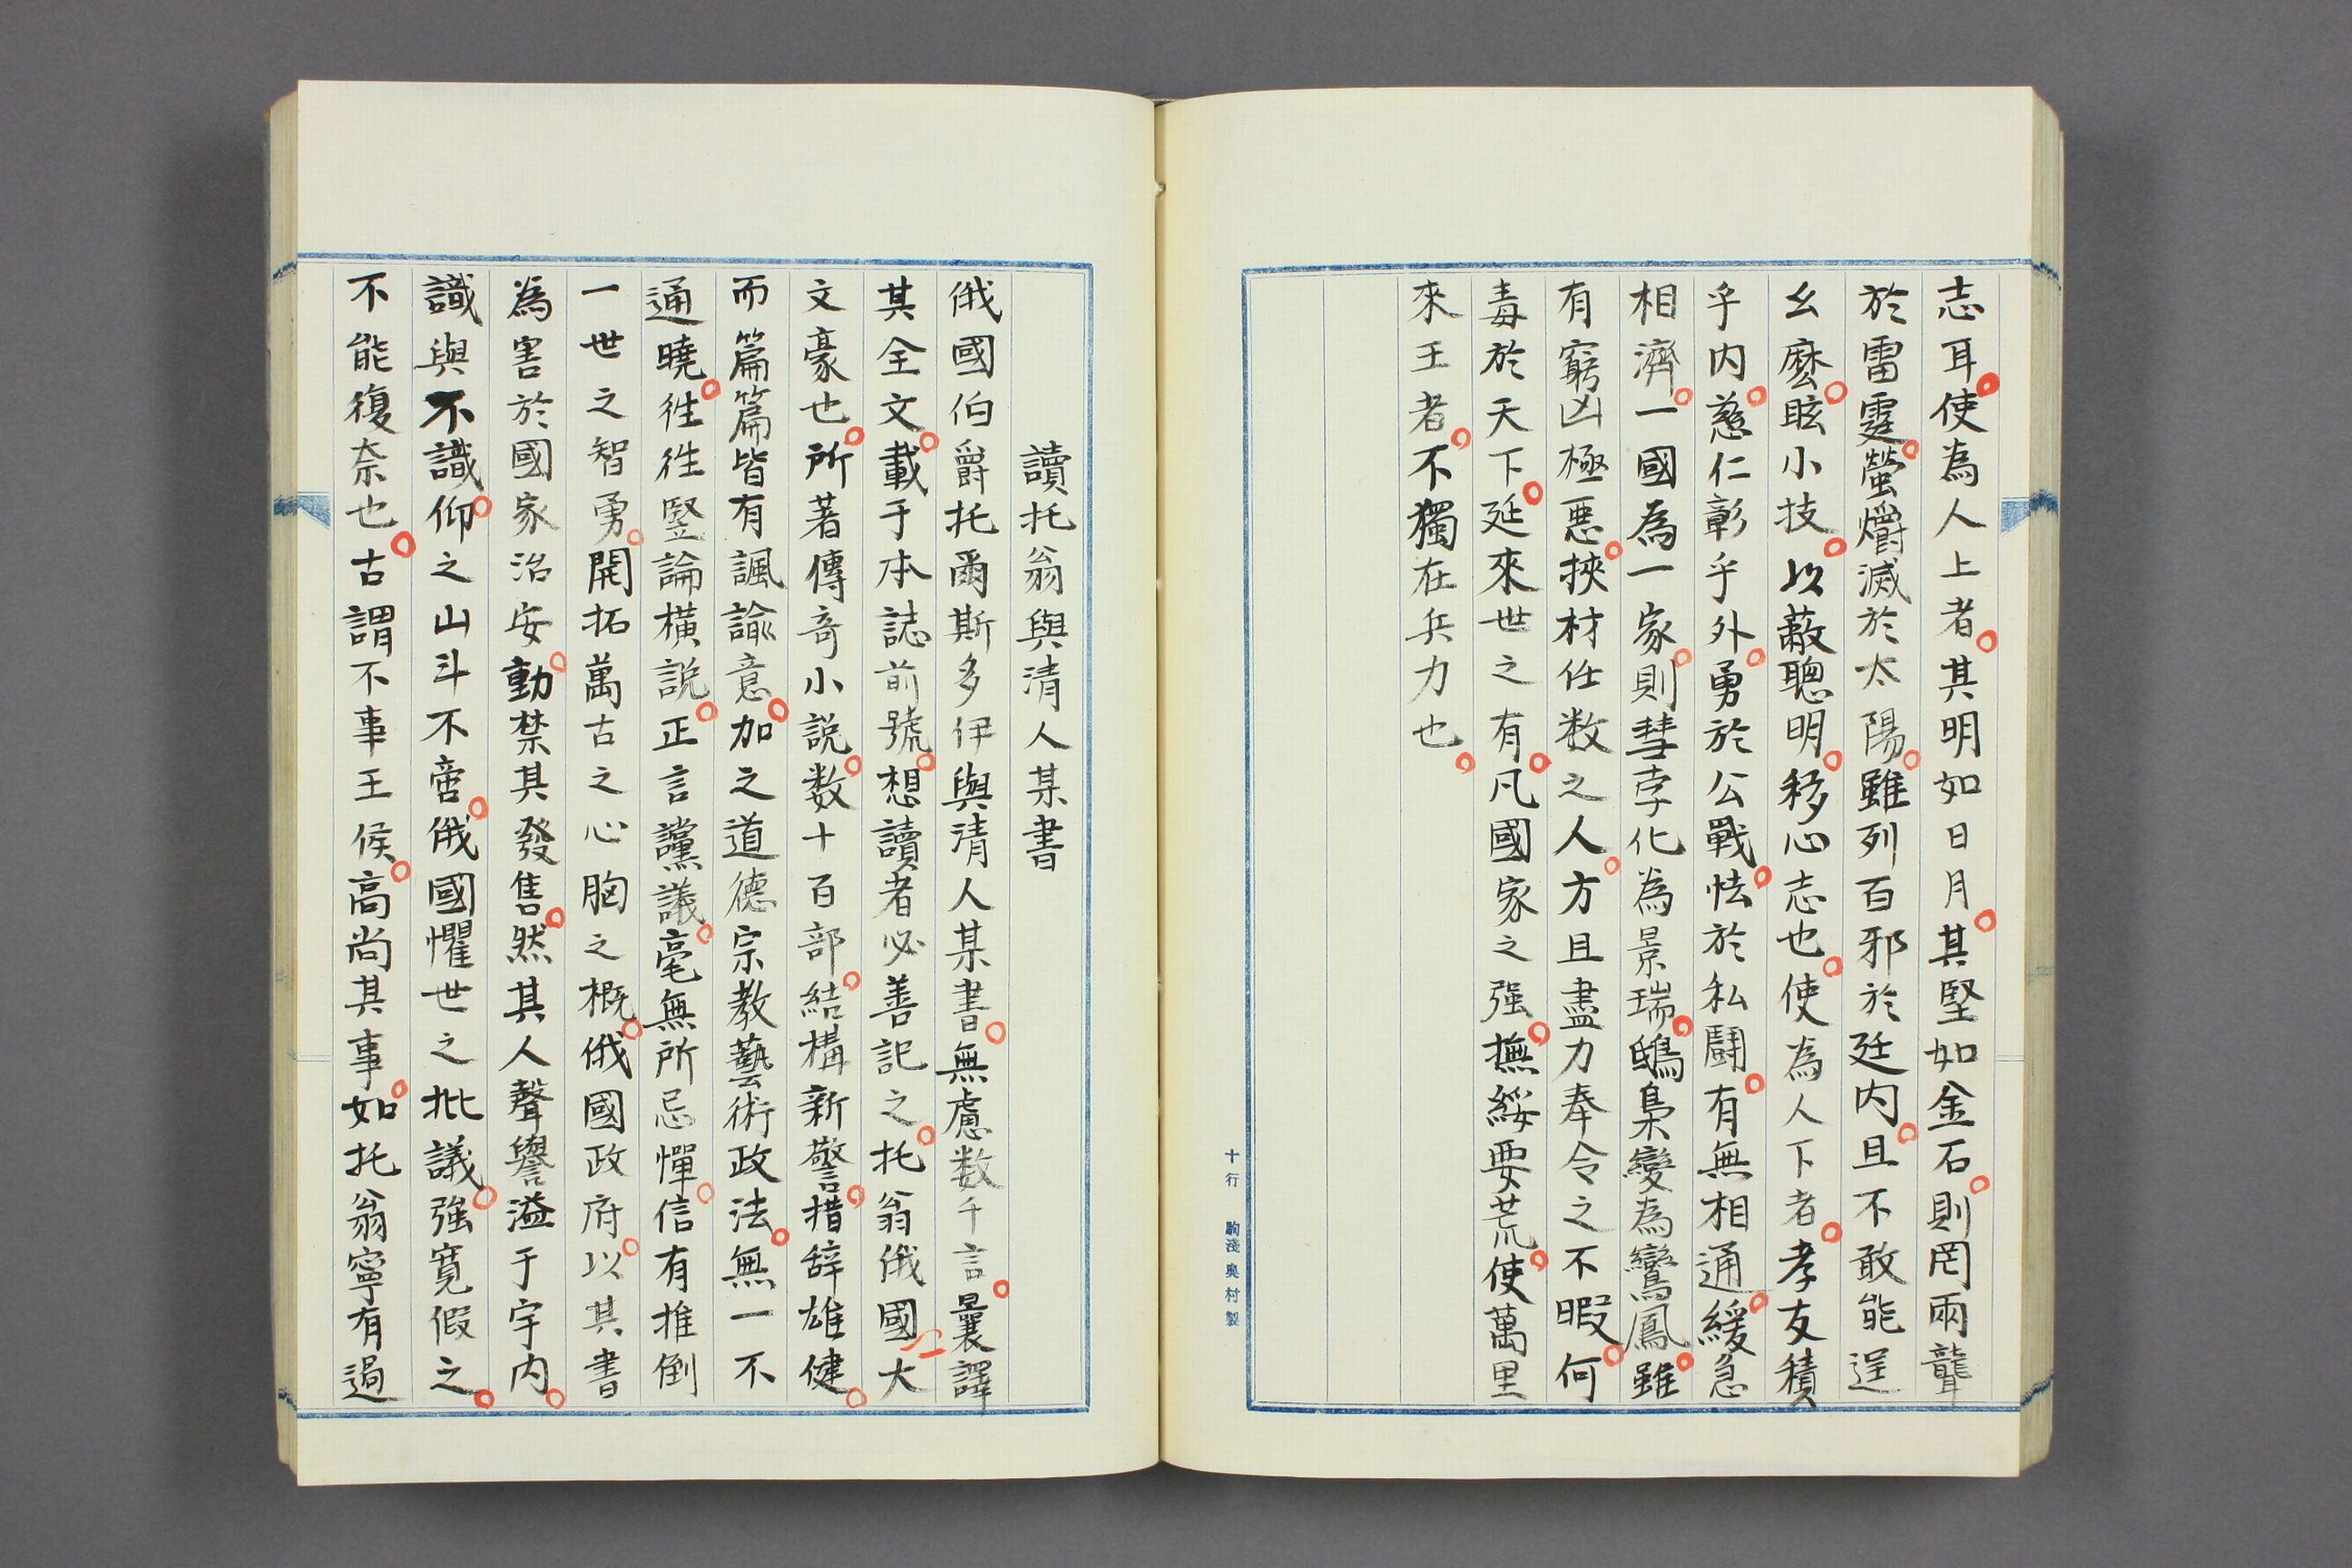 志耳使為人上者其明如日月其堅如金石則罔兩聾
於雷霆螢爝滅於太陽雖列百邪於廷内且不敢能逞
幺麽眩小技以蔽聰明移心志也使為人下者孝友積
乎内慈仁彰乎外勇於公戰怯於私鬪有無相通緩急
相濟一國為一家則彗孛化為景瑞鴟梟變為鸞鳳雖
有窮凶極悪挾材任数之人方且盡力奉令之不暇何
毒於天下延來世之有凡國家之强撫綏要荒使萬里
來王者不獨在兵力也
十行 駒淺奥村製
讀托翁與清人某書
俄國伯爵托爾斯多伊與清人某書無慮数千言曩譯
其全文載于本誌前號想讀者必善記之托翁俄國大
文豪也所著傳奇小説数十百部結構新警措辞雄健
而篇篇皆有諷諭意加之道德宗教藝術政法無一不
通曉徃徃竪論橫説正言讜議毫無所忌憚信有推倒
一世之智勇開拓萬古之心胸之概俄國政府以其書
為害於國家治安動禁其發售然其人聲譽溢于宇内
識與不識仰之山斗不啻俄國懼世之批議强寛假之
不能復奈也古謂不事王侯高尚其事如托翁寧有過